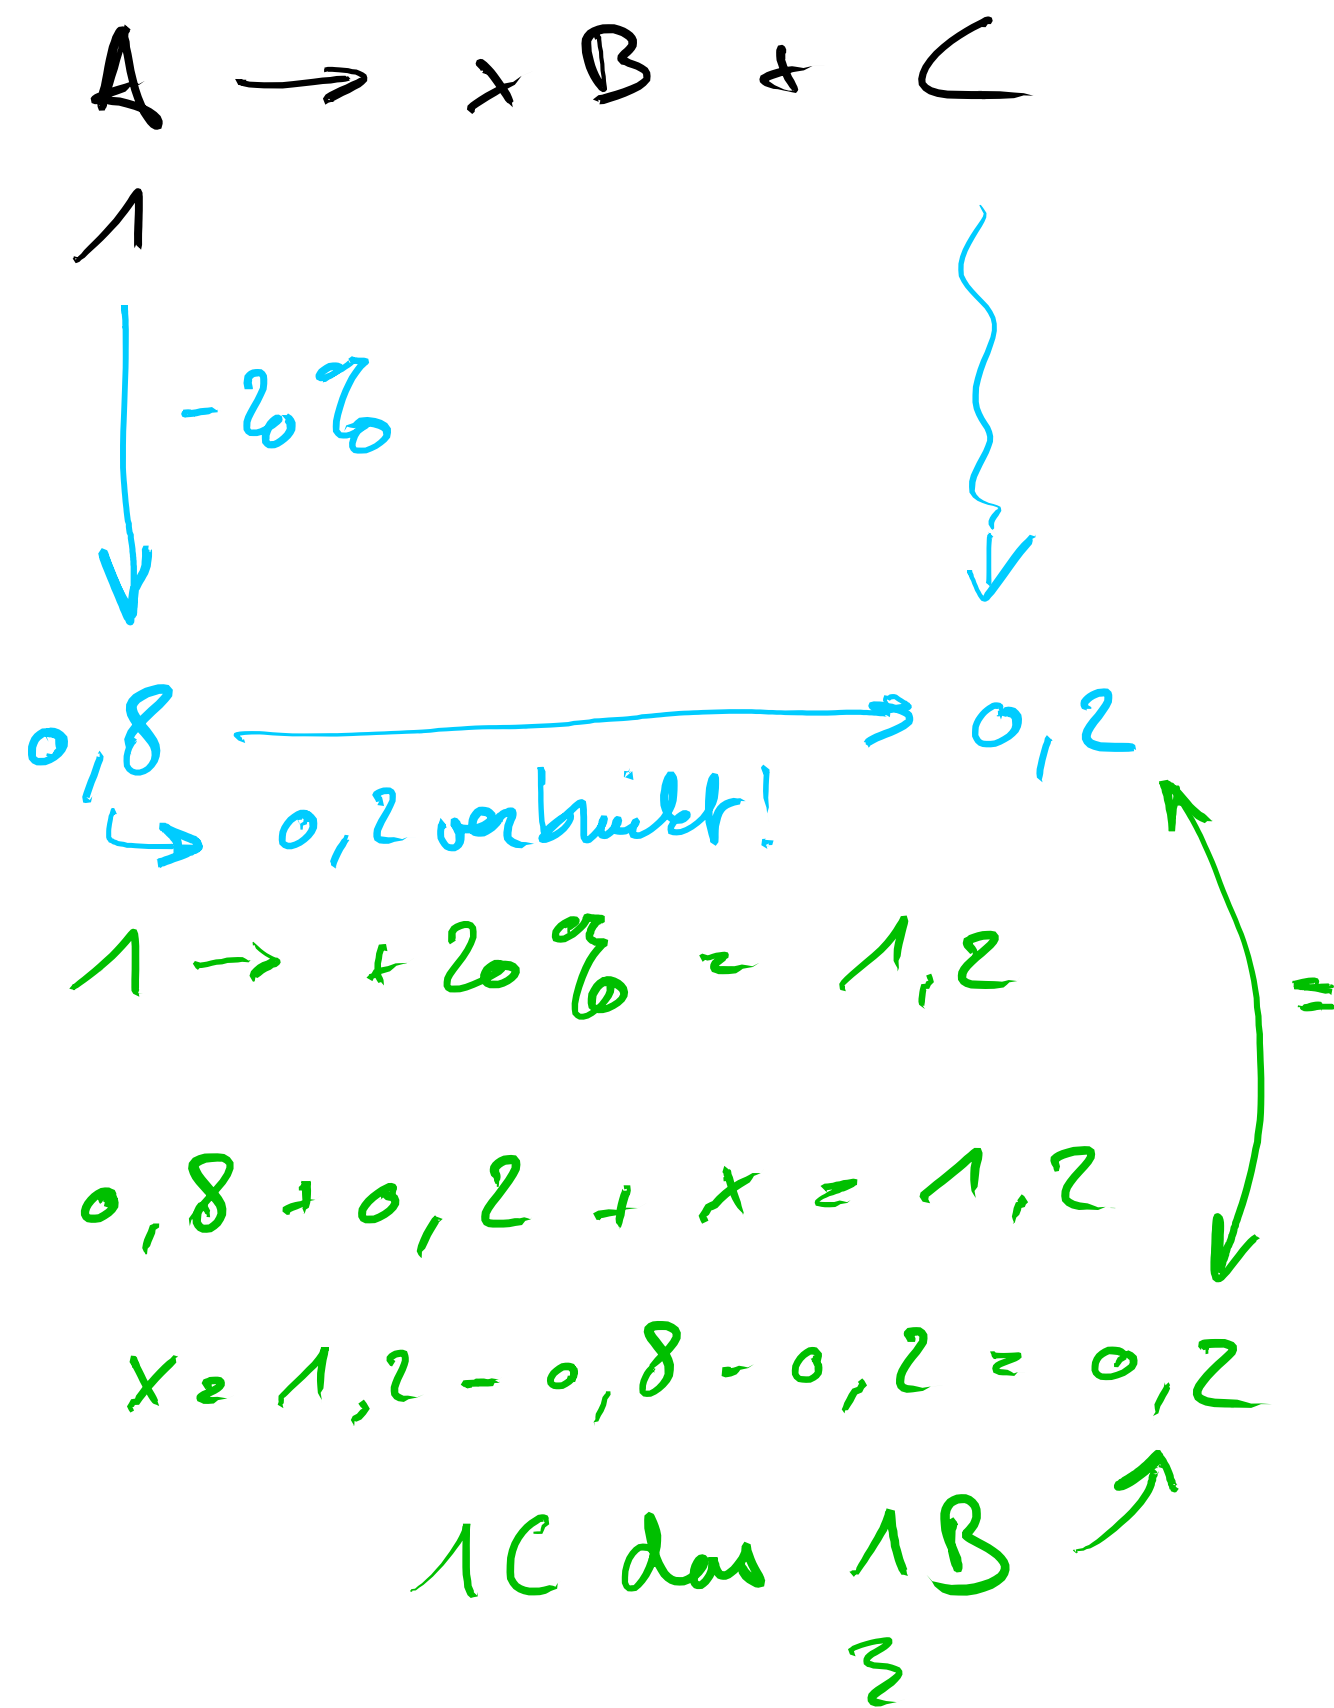 A → x B + C
1
-20%
0,8 → 0,2
↳ 0,2 verbruikt!
1 → +20% = 1,2
=
0,8 + 0,2 + x = 1,2
x = 1,2 - 0,8 - 0,2 = 0,2
1C dus 1B